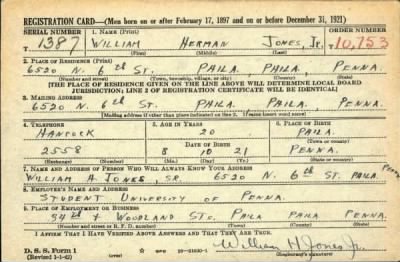 REGISTRATION CARD—(Men born on or after February 17, 1897 and on or before December 31, 1921)
SERIAL NUMBER 1. NAME (Print) ORDER NUMBER
T 1387 WILLIAM HERMAN JONES, Jr. T 10,753
(First) (Middle) (Last)
2. PLACE OF RESIDENCE (Print)
6520 N. 6th ST. PHILA. PHILA. PENNA.
(Number and street) (Town, township, village, or city) (County) (State)
[THE PLACE OF RESIDENCE GIVEN ON THE LINE ABOVE WILL DETERMINE LOCAL BOARD
JURISDICTION; LINE 2 OF REGISTRATION CERTIFICATE WILL BE IDENTICAL]
3. MAILING ADDRESS
6520 N. 6th ST. PHILA. PHILA. PENNA.
[Mailing address if other than place indicated on line 2. If same insert word same]
4. TELEPHONE 5. AGE IN YEARS 6. PLACE OF BIRTH
HANCOCK 20 PHILA.
DATE OF BIRTH (Town or county)
2558 8 10 21 PENNA.
(Exchange) (Number) (Mo.) (Day) (Yr.) (State or country)
7. NAME AND ADDRESS OF PERSON WHO WILL ALWAYS KNOW YOUR ADDRESS
WILLIAM A. JONES, SR. 6520 N. 6th ST. PHILA. PENNA.
8. EMPLOYER'S NAME AND ADDRESS
STUDENT UNIVERSITY OF PENNA.
9. PLACE OF EMPLOYMENT OR BUSINESS
34th & WOODLAND STS. PHILA PHILA PENNA.
(Number and street or R. F. D. number) (Town) (County) (State)
I AFFIRM THAT I HAVE VERIFIED ABOVE ANSWERS AND THAT THEY ARE TRUE.
D. S. S. Form 1
(Revised 1-1-42)
William H Jones Jr.
(Registrant's signature)